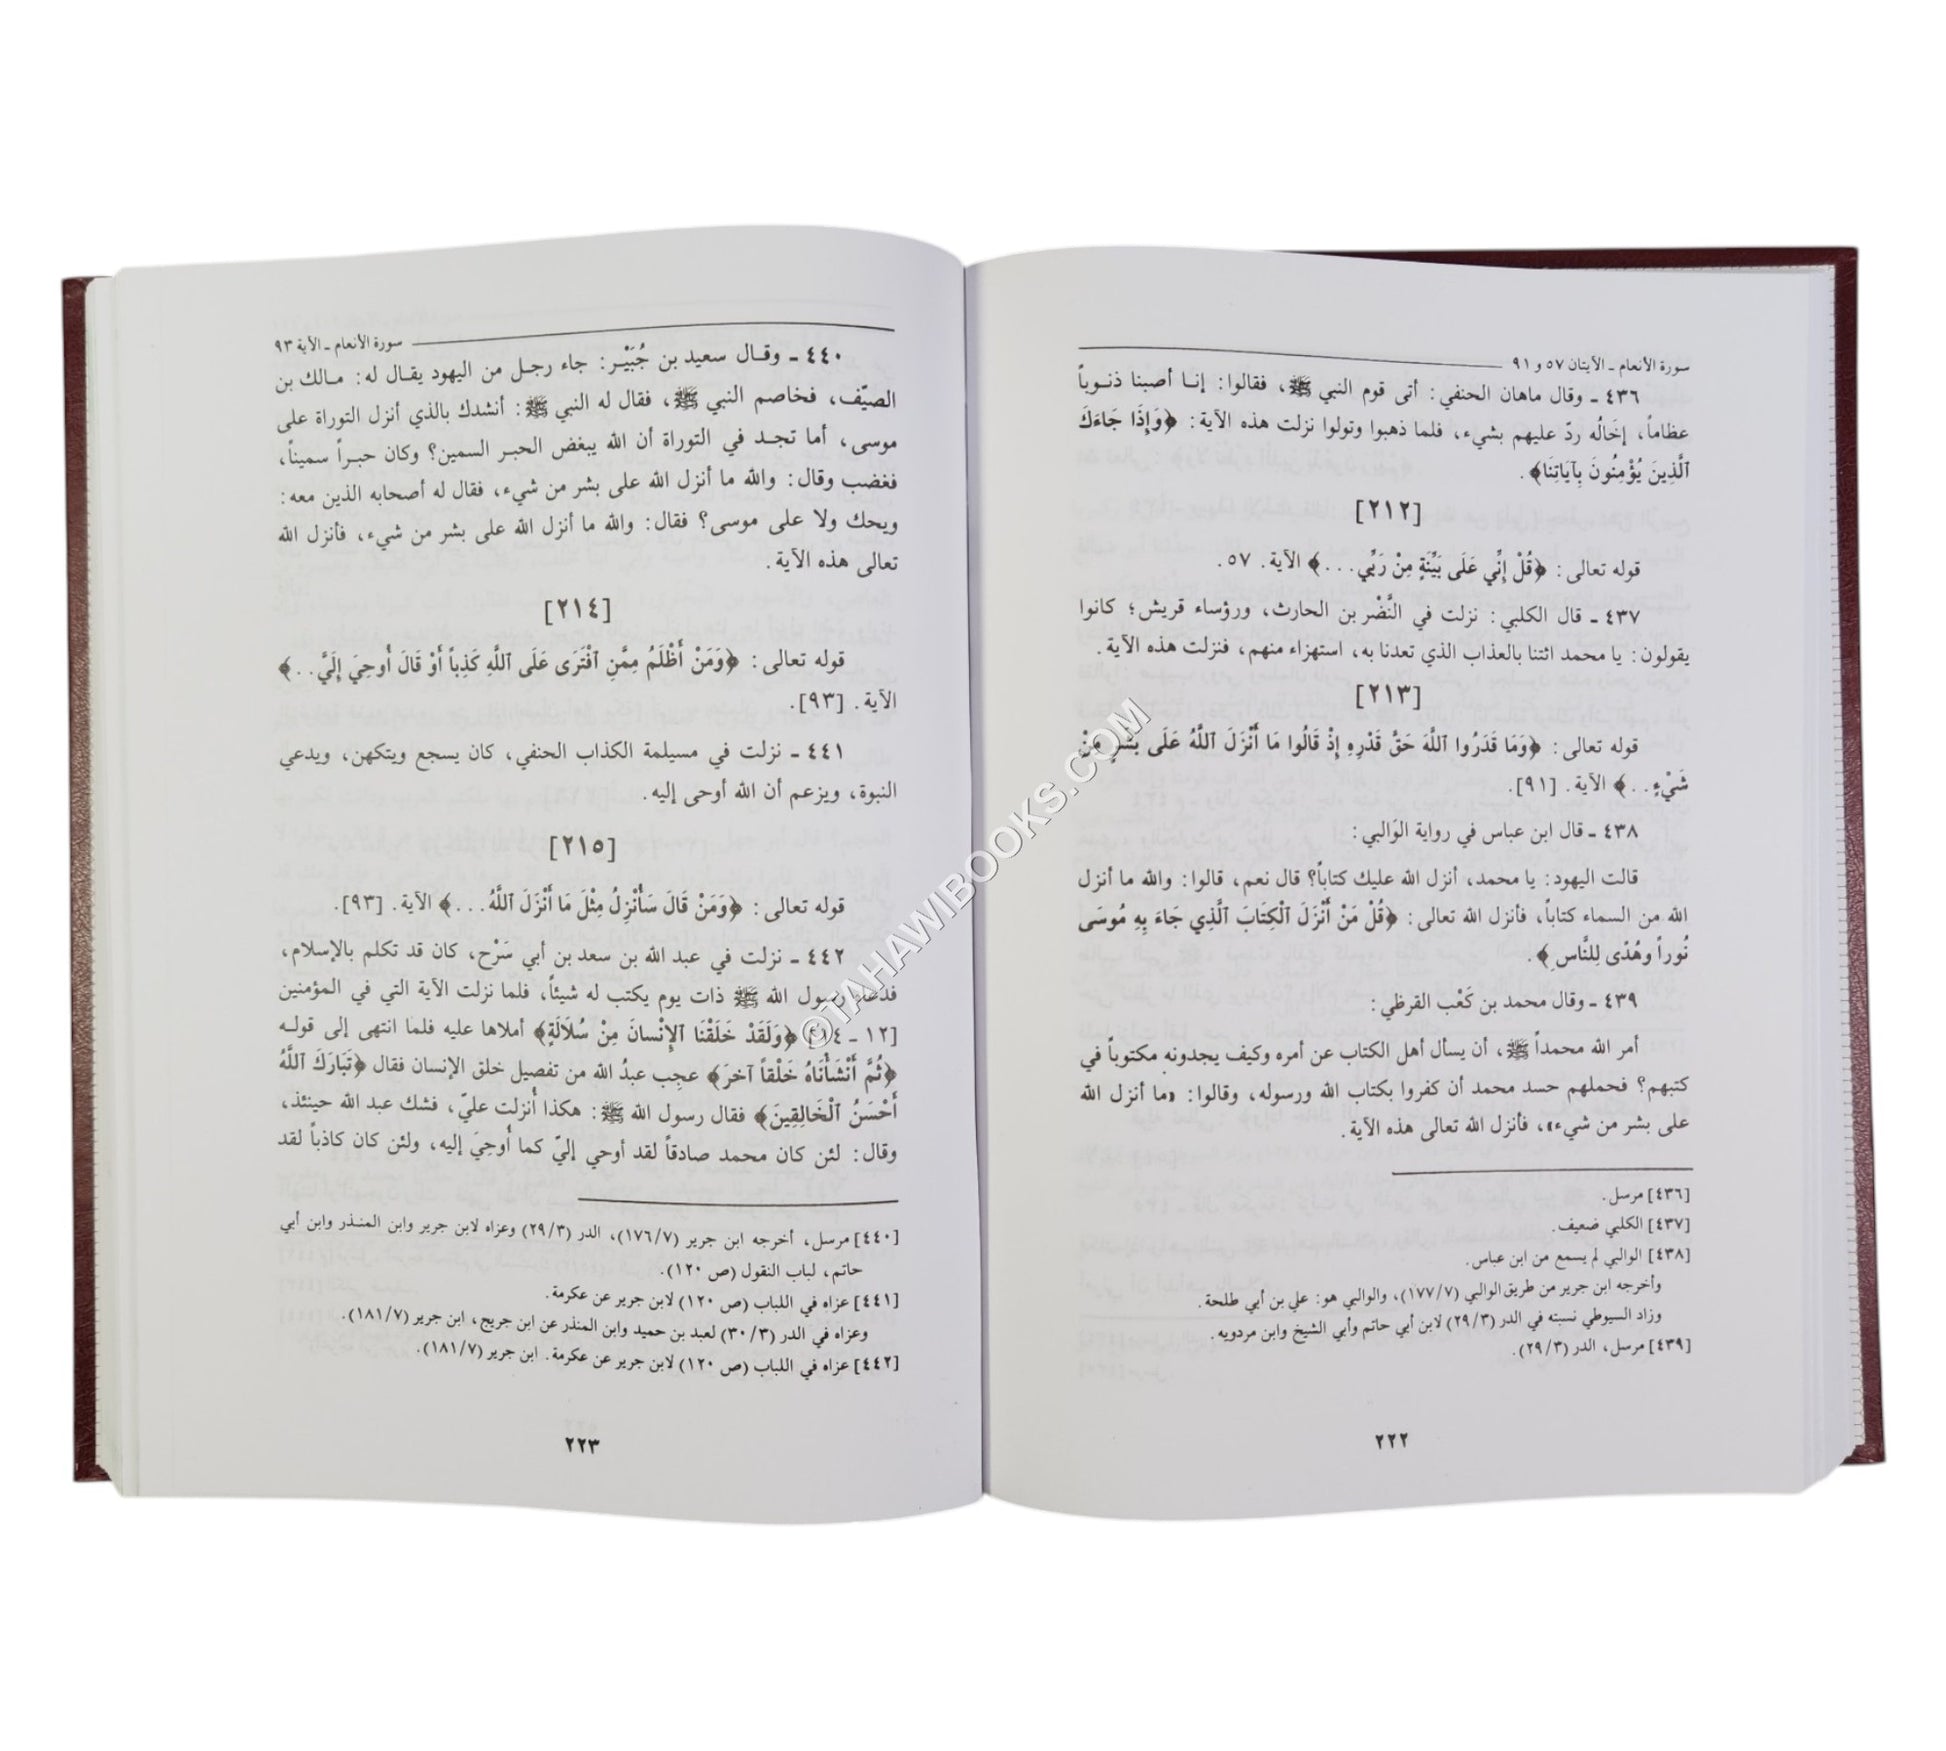 سورة الأنعام ـ الآيتان ٥٧ و ٩١
٤٣٦ ـ وقال ماهان الحنفي: أتى قوم النبي ﷺ، فقالوا: إنـا أصبنا ذنـوباً
عظاماً، إخَالُه ردّ عليهم بشيء، فلما ذهبوا وتولوا نزلت هذه الآية: ﴿وَإِذَا جَاءَكَ
ٱلَّذِينَ يُؤْمِنُونَ بِآيَاتِنَا﴾.
[٢١٢]
قوله تعالى: ﴿قُلْ إِنِّي عَلَى بَيِّنَةٍ مِنْ رَبِّي...﴾ الآية. ٥٧.
٤٣٧ ـ قال الكلبي: نزلت في النَّضْر بن الحارث، ورؤساء قريش؛ كانوا
يقولون: يا محمد ائتنا بالعذاب الذي تعدنا به، استهزاء منهم، فنزلت هذه الآية.
[٢١٣]
قوله تعالى: ﴿وَمَا قَدَرُوا ٱللَّهَ حَقَّ قَدْرِهِ إِذْ قَالُوا مَا أَنْزَلَ ٱللَّهُ عَلَى بَشَرٍ مِنْ
شَيْءٍ..﴾ الآية. [٩١].
٤٣٨ ـ قال ابن عباس في رواية الوَالبي:
قالت اليهود: يا محمد، أنزل الله عليك كتاباً؟ قال نعم، قالوا: والله ما أنزل
الله من السماء كتاباً، فأنزل الله تعالى: ﴿قُلْ مَنْ أَنْزَلَ ٱلْكِتَابَ ٱلَّذِي جَاءَ بِهِ مُوسَى
نُوراً وَهُدًى لِلنَّاسِ﴾.
٤٣٩ ـ وقال محمد بن كَعْب القرظي:
أمر الله محمداً ﷺ، أن يسأل أهل الكتاب عن أمره وكيف يجدونه مكتوباً في
كتبهم؟ فحملهم حسد محمد أن كفروا بكتاب الله ورسوله، وقالوا: «ما أنزل الله
على بشر من شيء»، فأنزل الله تعالى هذه الآية.
[٤٣٦] مرسل.
[٤٣٧] الكلبي ضعيف.
[٤٣٨] الوالبي لم يسمع من ابن عباس.
وأخرجه ابن جرير من طريق الوالبي (١٧٧/٧)، والوالبي هو: علي بن أبي طلحة.
وزاد السيوطي نسبته في الدر (٢٩/٣) لابن أبي حاتم وأبي الشيخ وابن مردويه.
[٤٣٩] مرسل، الدر (٢٩/٣).
٢٢٢
سورة الأنعام ـ الآية ٩٣
٤٤٠ ـ وقـال سعيد بن جُبَيْـر: جاء رجـل من اليهود يقـال له: مـالك بن
الصيّف، فخاصم النبي ﷺ، فقال له النبي ﷺ: أنشدك بالذي أنزل التوراة على
موسى، أما تجـد في التوراة أن الله يبغض الحبـر السمين؟ وكان حبـراً سميناً،
فغضب وقال: والله ما أنزل الله على بشر من شيء، فقال له أصحابه الذين معه:
ويحك ولا على موسى؟ فقال: والله ما أنزل الله على بشر من شيء، فأنزل الله
تعالى هذه الآية.
[٢١٤]
قوله تعالى: ﴿وَمَنْ أَظْلَمُ مِمَّنِ ٱفْتَرَى عَلَى ٱللَّهِ كَذِباً أَوْ قَالَ أُوحِيَ إِلَيَّ..﴾
الآية. [٩٣].
٤٤١ ـ نزلت في مسيلمة الكذاب الحنفي، كان يسجع ويتكهن، ويدعي
النبوة، ويزعم أن الله أوحى إليه.
[٢١٥]
قوله تعالى: ﴿وَمَنْ قَالَ سَأُنْزِلُ مِثْلَ مَا أَنْزَلَ ٱللَّهُ...﴾ الآية. [٩٣].
٤٤٢ ـ نزلت في عبد الله بن سعد بن أبي سَرْح، كان قد تكلم بالإسلام،
فدعاه رسول الله ﷺ ذات يوم يكتب له شيئاً، فلما نزلت الآية التي في المؤمنين
[١٢ ـ ١٤] ﴿وَلَقَدْ خَلَقْنَا ٱلإِنْسانَ مِنْ سُلَالَةٍ﴾ أملاها عليه فلما انتهى إلى قولـه
﴿ثُمَّ أَنْشَأْنَاهُ خَلْقاً آخَرَ﴾ عجِب عبدُ الله من تفصيل خلق الإنسان فقال ﴿تَبَارَكَ ٱللَّهُ
أَحْسَنُ ٱلْخَالِقِينَ﴾ فقال رسول الله ﷺ: هكذا أُنزلت عليّ، فشك عبد الله حينئذ،
وقال: لئن كان محمد صادقاً لقد أوحي إليّ كما أُوحِيَ إليه، ولئن كان كاذباً لقد
[٤٤٠] مرسل، أخرجه ابن جرير (١٧٦/٧)، الدر (٢٩/٣) وعزاه لابن جرير وابن المنـذر وابن أبي
حاتم، لباب النقول (ص ١٢٠).
[٤٤١] عزاه في اللباب (ص ١٢٠) لابن جرير عن عكرمة.
وعزاه في الدر (٣٠/٣) لعبد بن حميد وابن المنذر عن ابن جريج، ابن جرير (١٨١/٧).
[٤٤٢] عزاه في اللباب (ص ١٢٠) لابن جرير عن عكرمة. ابن جرير (١٨١/٧).
٢٢٣
©TAHAWIBOOKS.COM